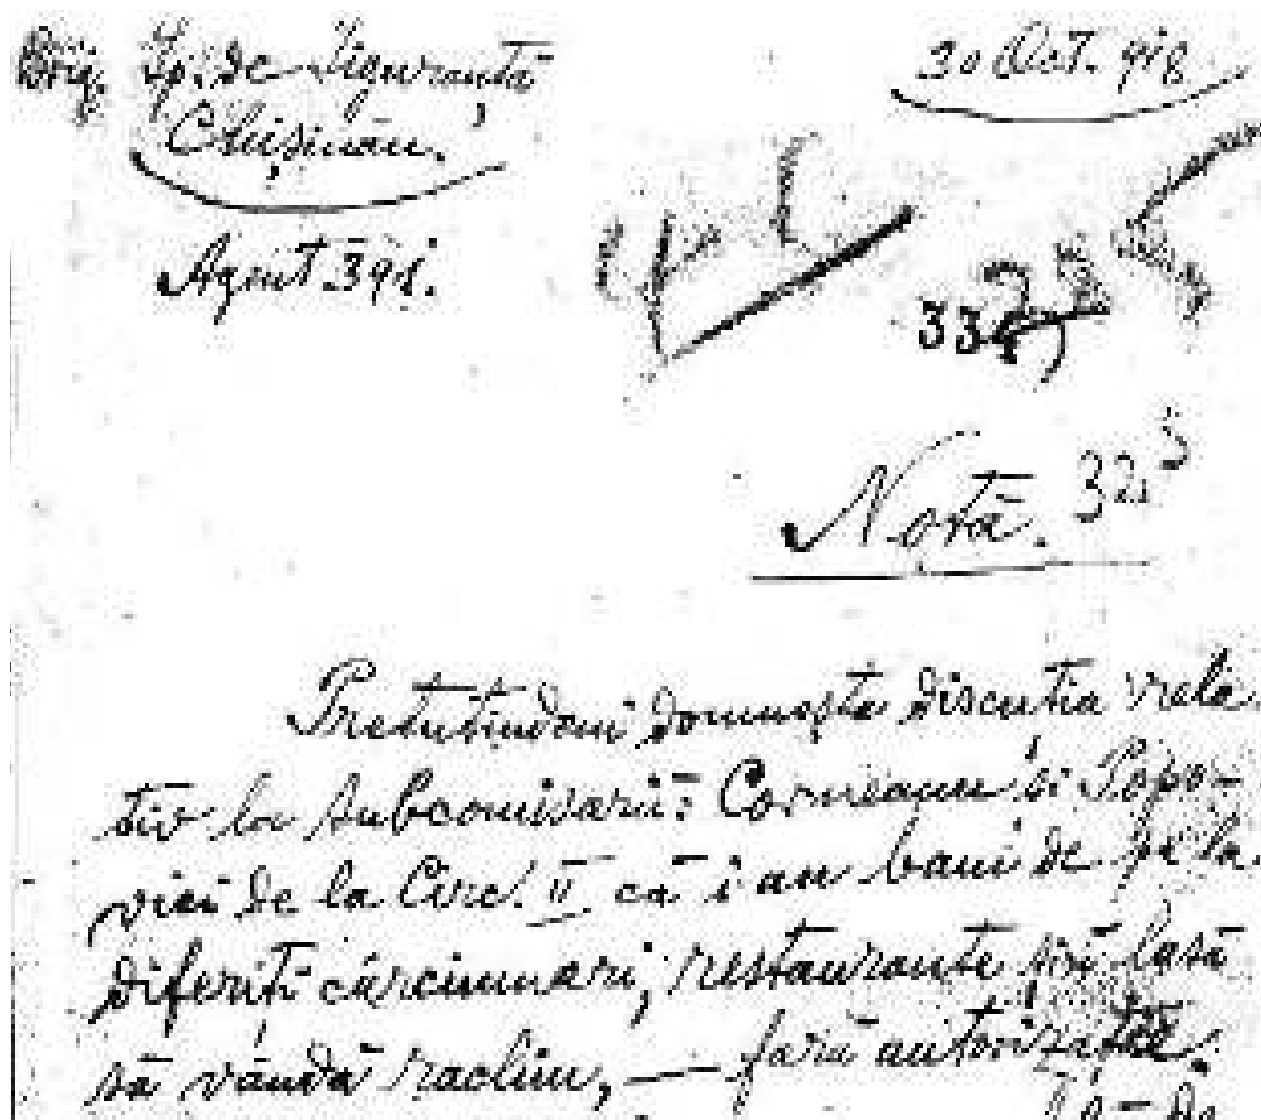 Brig. Sp. de Siguranță
Chișinău.
30 Oct. 918
Agent 391.
Notă.
Pretutindeni domnește discuția rela
tiv la subcomisarii: Corneanu și Popo-
vici de la Circ. II că iau bani de pe la
diferiți cârciumari, restaurante și-i lasă
să vândă rachiu, — fără autorizație.